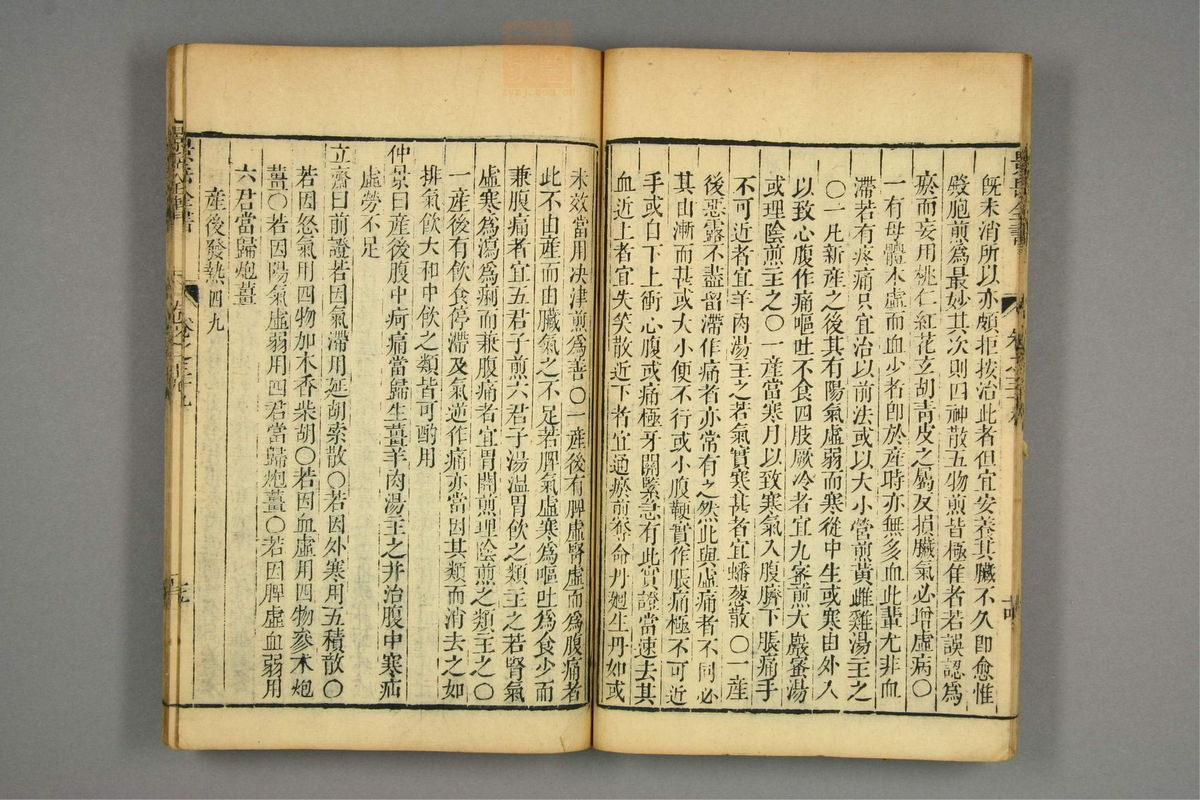 既未消所以亦頗拒按治此者但宜安養其臟不久卽愈惟
殿胞煎爲最妙其次則四神散五物煎皆極隹者若誤認爲
瘀而妄用桃仁紅花玄胡靑皮之屬反損臟氣必增虛病〇
一有母體本虛而血少者卽於產時亦無多血此輩尤非血
滯若有疼痛只宜治以前法或以大小營煎黃雌雞湯主之
〇一凡新產之後其有陽氣虛弱而寒從中生或寒由外入
以致心腹作痛嘔吐不食四肢厥冷者宜九蜜煎大巖蜜湯
或理陰煎主之〇一產當寒月以致寒氣入腹臍下脹痛手
不可近者宜羊肉湯主之若氣實寒甚者宜蟠葱散〇一產
後惡露不盡留滯作痛者亦常有之然此與虛痛者不同必
其由漸而甚或大小便不行或小腹鞕實作脹痛極不可近
手或自下上衝心腹或痛極牙關緊急有此實證當速去其
血近上者宜失笑散近下者宜通瘀煎奪命丹廻生丹如或
未效當用决津煎爲善〇一產後有脾虛腎虛而爲腹痛者
此不由產而由臟氣之不足若脾氣虛寒爲嘔吐爲食少而
兼腹痛者宜五君子煎六君子湯溫胃飮之類主之若腎氣
虛寒爲瀉爲痢而兼腹痛者宜胃關煎理陰煎之類主之〇
一產後有飮食停滯及氣逆作痛亦當因其類而消去之如
排氣飮大和中飮之類皆可酌用
仲景曰產後腹中㽲痛當歸生薑羊肉湯主之并治腹中寒疝
虛勞不足
立齋曰前證若因氣滯用延胡索散〇若因外寒用五積散〇
若因怒氣用四物加木香柴胡〇若因血虛用四物參朮炮
薑〇若因陽氣虛弱用四君當歸炮薑〇若因脾虛血弱用
六君當歸炮薑
產後發熱四九